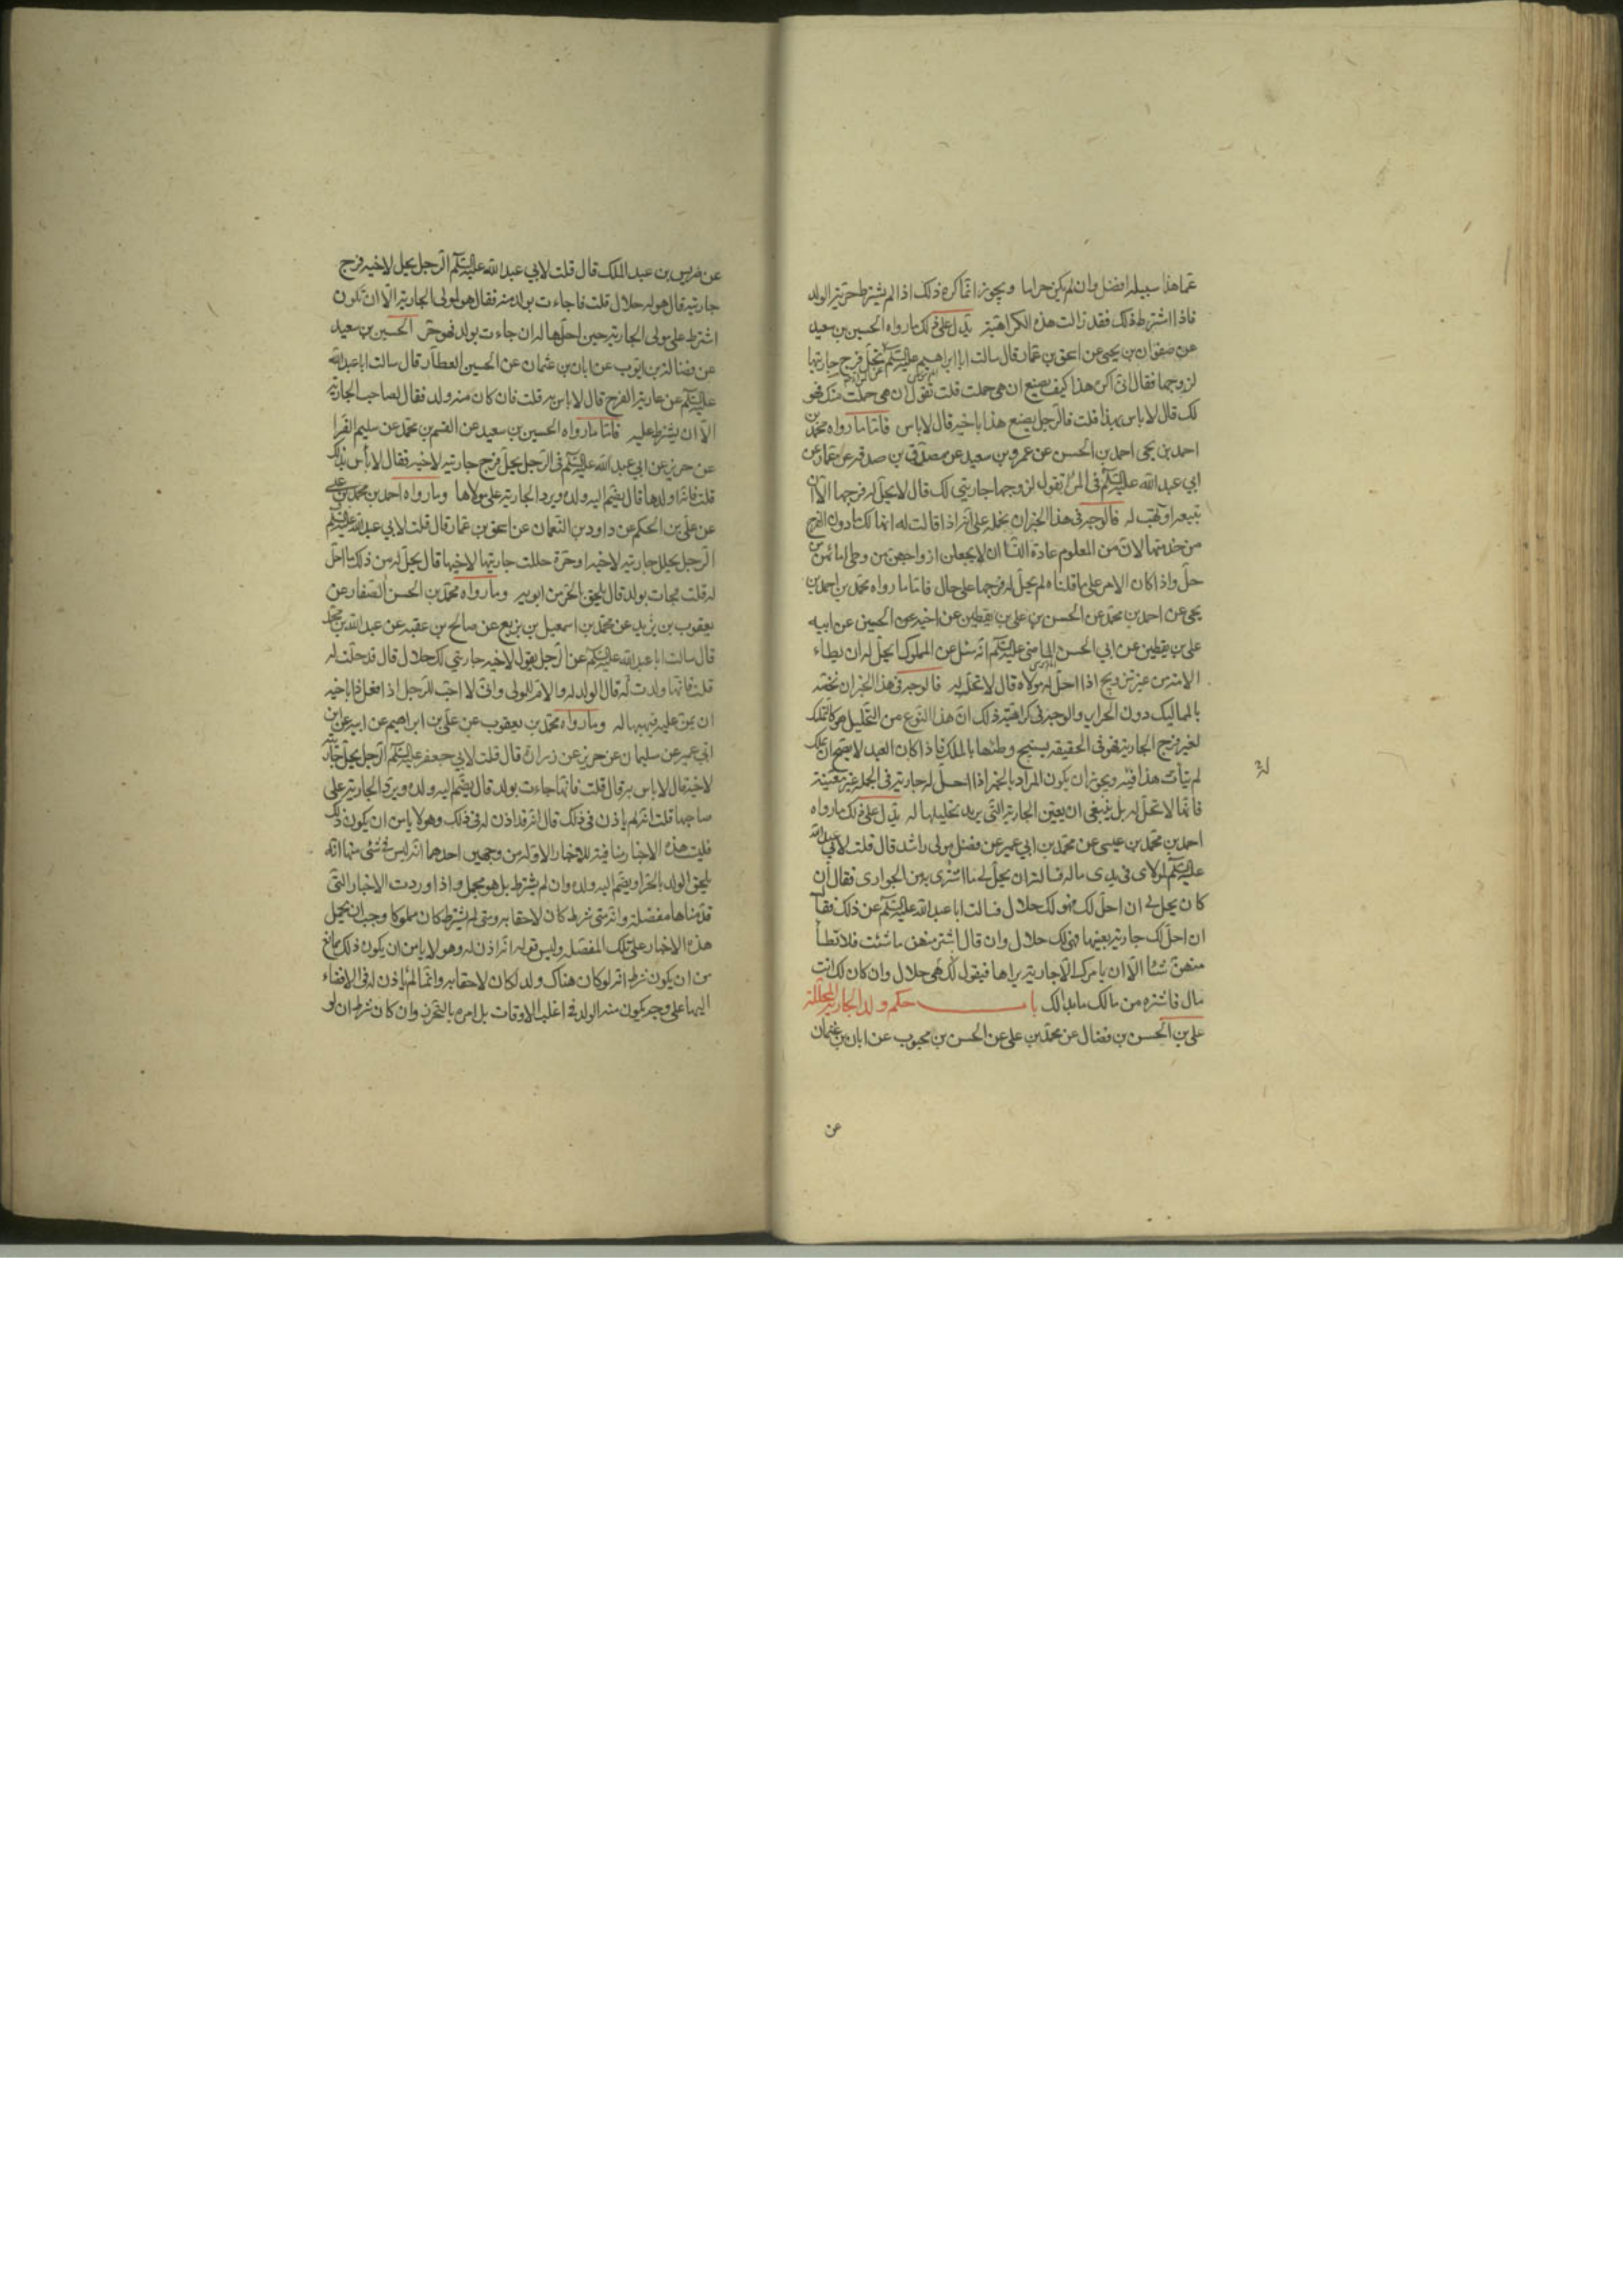 عما هذا سبيله افضل وان لم يكن حراما ويجوز انما كره ذلك اذا لم يشترط حرية الولد
فاذا اشترط ذلك فقد زالت هذه الكراهية يدل على ذلك ما رواه الحسين بن سعيد
عن صفوان بن يحيى عن اسحق بن عمار قال سالت ابا ابراهيم عليه السلم تحل فرج جاريتها
لزوجها فقال اني اكره هذا كيف يصنع ان هي حملت قلت تقول ان هي حملت منك فهو
لك قال لا باس بهذا قلت فالرجل يصنع هذا باخيه قال لا باس فاما ما رواه محمد بن
احمد بن يحيى احمد بن الحسن عن عمرو بن سعيد عن مصدق بن صدقه عن عمار عن
ابي عبد الله عليه السلم في المراة تقول لزوجها جاريتي لك قال لا يحل له فرجها الا ان
تبيعه او تهب له فالوجه في هذا الخبر ان نحمله على انه اذا قالت له انها لك ما دون الفرج
من خدمتها لان من المعلوم عادة النسا ان لا يجعلن ازواجهن من وطى امائهن من
حل واذا كان الامر على ما قلناه لم يحل له فرجها على حال فاما ما رواه محمد بن احمد بن
يحيى عن احمد بن محمد عن الحسن بن علي بن يقطين عن اخيه عن الحسين عن ابيه
علي بن يقطين عن ابي الحسن الماضي عليه السلم انه سئل عن المملوك يحل له ان يطاء
الامة من غير تزويج اذا احل له مولاه قال لا تحل له فالوجه في هذا الخبر ان نخصه
بالمماليك دون الحراير والوجه في كراهية ذلك ان هذا النوع من التحليل هو كالتمليك
لغير فرج الجارية فهو في الحقيقه يستبيح وطئها بالملك فاذا كان العبد لا يصح ان يملك
لم يتأت هذا فيه ويجوز ان يكون المراد بالخبر اذا احل له جارية في الجمله غير معينة
فانها لا تحل له بل ينبغي ان يعين الجارية التي يريد تحليلها له يدل على ذلك ما رواه
احمد بن محمد بن عيسى عن محمد بن ابي عمير عن فضل مولى راشد قال قلت لابي عبد الله
عليه السلم لمولاي في يدي مال فسالته ان يحل لي ما اشترى من الجوارى فقال ان
كان يحل لي ان احل لك فهو لك حلال فسالت ابا عبد الله عليه السلم عن ذلك فقال
ان احل لك جارية بعينها فهى لك حلال وان قال اشتر منهن ما شئت فلا تطأ
منهن شيئا الا ان يامرك الا جارية يراها فيقول لك هي حلال وان كان لك انت
مال فاشتره من مالك ما بدا لك باب حكم ولد الجارية المحللة
علي بن الحسن بن فضال عن محمد بن علي عن الحسن بن محبوب عن ابان بن عثمان
عن
عن ضريس بن عبد الملك قال قلت لابي عبد الله عليه السلم الرجل يحل لاخيه فرج
جاريته قال هو له حلال قلت فاجاءت بولد منه فقال هو لمولى الجارية الا ان تكون
اشترط على مولى الجارية حين احلها له ان جاءت بولد فهو حر الحسين بن سعيد
عن فضالة بن ايوب عن ابان بن عثمان عن الحسين العطار قال سالت ابا عبد الله
عليه السلم عن عارية الفرج قال لا باس به قلت فان كان منه ولد فقال لصاحب الجارية
الا ان يشترط عليه فاما ما رواه الحسين بن سعيد عن القسم بن محمد عن سليم الفرا
عن حريز عن ابي عبد الله عليه السلم في الرجل يحل فرج جاريته لاخيه فقال لا بأس بذلك
قلت فانه اولدها قال يضم اليه ولده ويرد الجارية على مولاها وما رواه احمد بن محمد بن عيسى
عن علي بن الحكم عن داود بن النعمان عن اسحق بن عمار قال قلت لابي عبد الله عليه السلم
الرجل يحلل جاريته لاخيه او حرة حللت جاريتها لاخيها قال يحل له من ذلك ما احل
له قلت فجات بولد قال يلحق بالحر من ابويه وما رواه محمد بن الحسن الصفار عن
يعقوب بن يزيد عن محمد بن اسمعيل بن بزيع عن صالح بن عقبه عن عبد الله بن محمد
قال سالت ابا عبد الله عليه السلم عن الرجل يقول لاخيه جاريتي لك حلال قال قد حلت له
قلت فانها ولدت له قال الولد له والام للمولى واني لا احب للرجل اذا فعل ذا باخيه
ان يمن عليه فيهبها له وما رواه محمد بن يعقوب عن علي بن ابراهيم عن ابيه عن ابن
ابي عمير عن سليمان عن حريز عن زرارة قال قلت لابي جعفر عليه السلم الرجل يحل جاريته
لاخيه قال لا باس به قال قلت فانها جاءت بولد قال يضم اليه ولده ويرد الجارية على
صاحبها قلت انه لم ياذن في ذلك قال انه قد اذن له في ذلك وهو لا ياس ان يكون ذلك
فليست هذه الاخبار منافية للاخبار الاوله من وجهين احدهما انه ليس في شئ منها انه
يلحق الولد بالحر او يضم اليه ولده وان لم يشترط بل هو مجمل واذا وردت الاخبار التي
قدمناها مفصلة وانه متى شرط كان لاحقا به ومتى لم يشترط كان مملوكا وجب ان نحمل
هذه الاخبار على تلك المفصله وليس قوله انه اذن له وهو لا ياس ان يكون ذلك بمانع
من ان يكون شرط انه لو كان هناك ولد لكان لاحقا به وانما لم ياذن له في الافضاء
اليها على وجه يكون منه الولد في اغلب الاوقات بل امره بالتحرز وان كان شرط ان لو